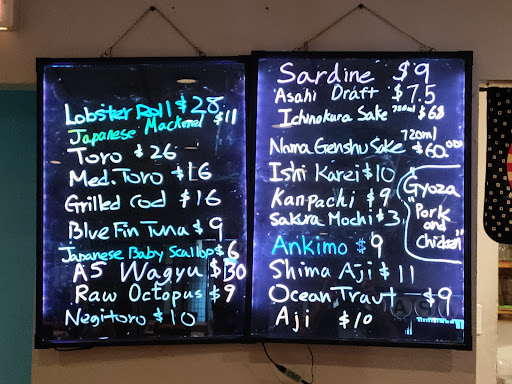 Lobster Roll $28
Japanese Mackerel $11
Toro $26
Med. Toro $16
Grilled Cod $16
Blue Fin Tuna $9
Japanese Baby Scallop $6
A5 Wagyu $130
Raw Octopus $9
Negitoro $10
Sardine $9
Asahi Draft $7.5
Ichinokura Sake 720ml $68
Nama Genshu Sake 720ml $60.00
Ishi Karei $10
Kanpachi $9
Sakura Mochi $3
Ankimo $9
Shima Aji $11
Ocean Traut $9
Aji $10
Gyoza
"Pork
and
Chicken"